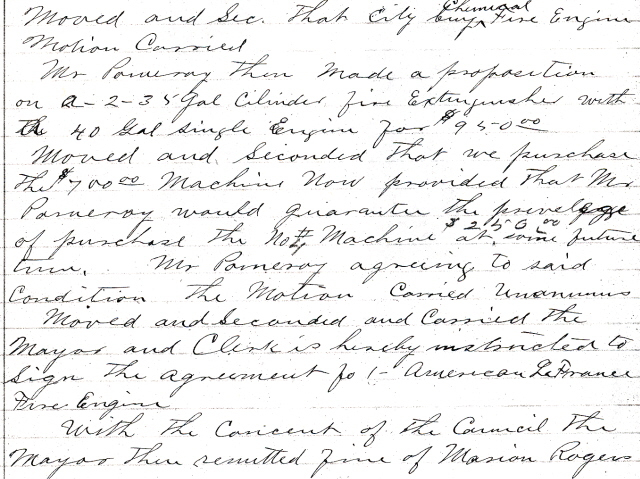 Moved and Sec. that City buy Chemical Fire Engine
Motion Carried
Mr Pomeroy then made a proposition
on a - 2 - 35 Gal Cilinder fire Extinguisher with
the 40 Gal single Engine for $950.00
Moved and Seconded that we purchase
the $700.00 Machine Now provided that Mr.
Pomeroy would guarantee the privelege
of purchase the No # 4 Machine $250.00 at some future
time. Mr Pomeroy agreeing to said
Condition the Motion Carried Unanimus
Moved and Seconded and Carried the
Mayor and Clerk is hereby instructed to
sign the agreement fo 1 - American LaFrance
Fire Engine
With the Concent of the Council the
Mayor then remitted fine of Marion Rogers